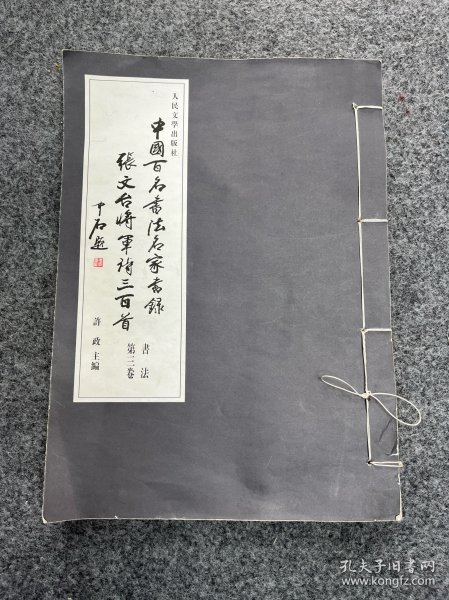 人民文學出版社
中國百名書法名家書錄
張文台將軍詩三百首
中石題
書法
第三卷
許政主編
孔夫子旧书网
www.kongfz.com